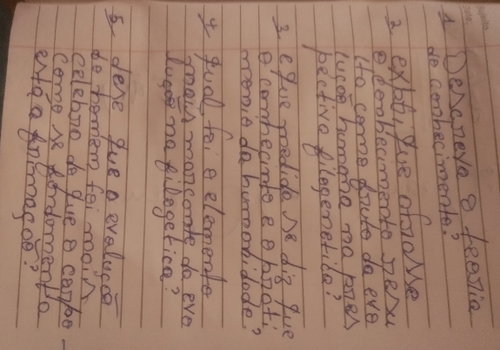 1 Descreva a teoria
do conhecimento?
2 explique a frase
o conhecimento resu
lta como fruto da evo
lução humana na pers
pectiva filogenetica?
3 e que medida se diz que
o conhecimento e o proti
monio da humanidade?
4 qual foi o elemento
mais marcante da evo
lução na filogetica?
5 dese que a evolução
do homem foi mais
celebra do que o corpo
como se fundamenta
esta afirmação?